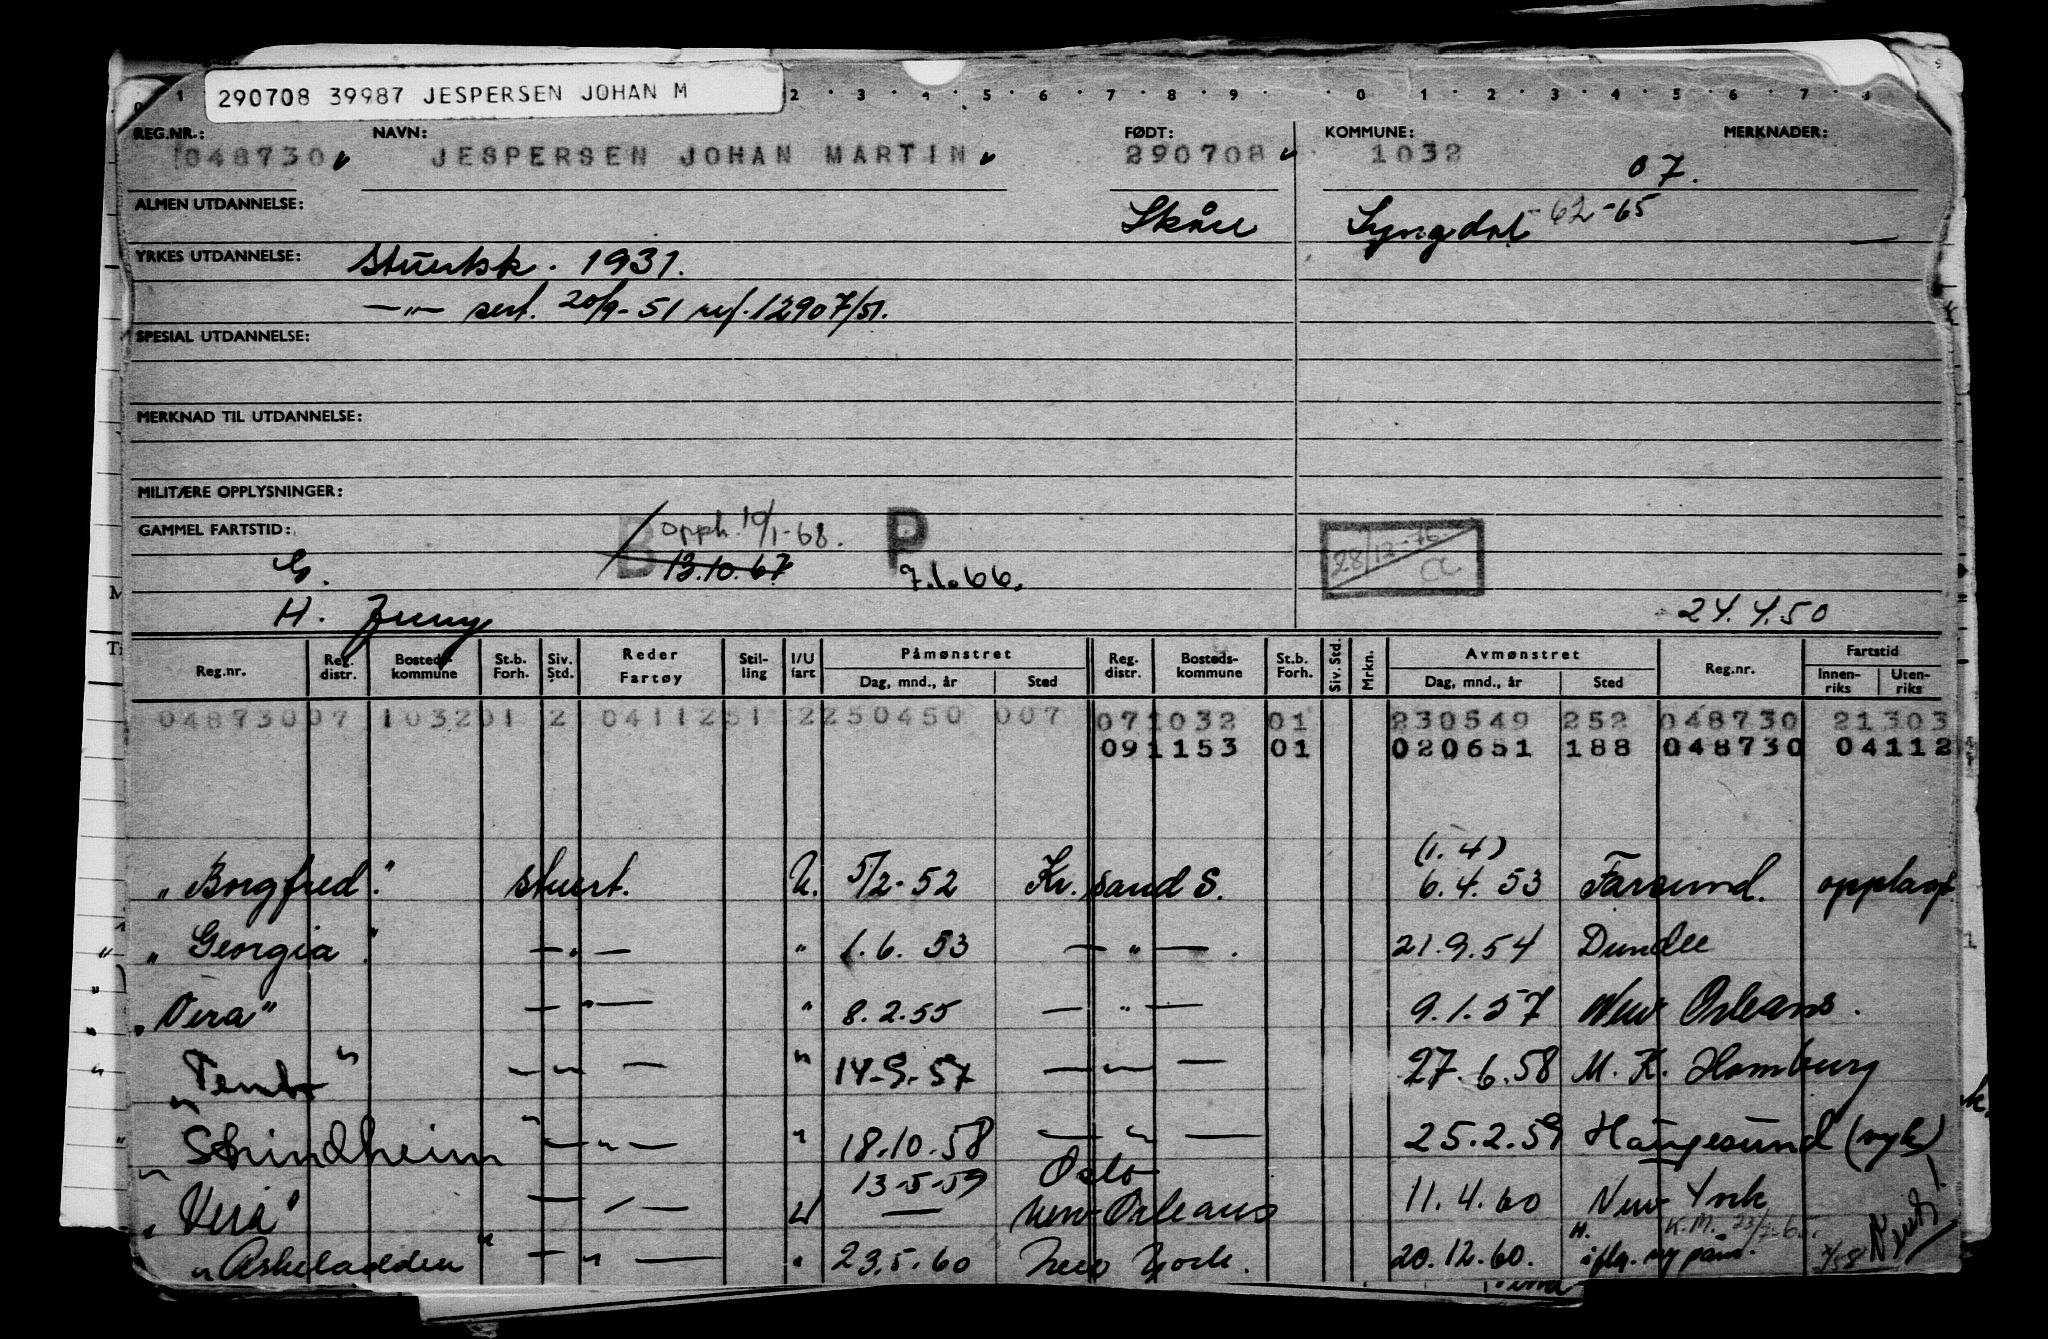 290708 39987 JESPERSEN JOHAN M
2 3 4 5 6 7 8 9 0 1 2 3 4 5 6 7 8
REG.NR.: NAVN: FØDT: KOMMUNE: MERKNADER:
048730 JESPERSEN JOHAN MARTIN 290708 1032 07.
ALMEN UTDANNELSE: Skåre Lyngdal 62-65
YRKES UTDANNELSE: Stuertsk. 1931.
—"— sert. 20/9-51 ref. 12907/51.
SPESIAL UTDANNELSE:
MERKNAD TIL UTDANNELSE:
MILITÆRE OPPLYSNINGER:
GAMMEL FARTSTID: B opph. 10/1-68. P
G. 13.10.67 7.1.66. 28/12-76
H. 24.4.50
Reg.nr. Reg. distr. Bosteds-kommune St.b. Forh. Siv. Std. Reder Fartøy Stil-ling I/U fart Påmønstret Reg. distr. Bosteds-kommune St.b. Forh. Siv. Std. Mrkn. Avmønstret Reg.nr. Fartstid
Dag, mnd., år Sted Dag, mnd., år Sted Innen-riks Uten-riks
048730 07 1032 01 2 041125 1 2 250450 007 07 1032 01 230549 252 048730 21303
09 1153 01 020651 188 048730 04112
(1.4)
"Borgfred". stuert. U. 5/2-52 Kr.sand S. 6.4.53 Farsund. opplagt.
"Georgia". —"— " 1.6.53 —"—. 21.9.54 Dundee
"Vera" —"— " 8.2.55 —"— 9.1.57 New Orleans.
"Tento" —"— " 14-9-57 —"— 27.6.58 M.K. Hamburg
"Strindheim" —"— " 18.10.58 —"— 25.2.59 Haugesund (syk)
13-5-59 Oslo
"Vera" —"— U — New-Orleans 11.4.60 New York
"Askeladden" —"— " 23.5.60 New York. 20.12.60. H. iflg. ny påm. K.M.